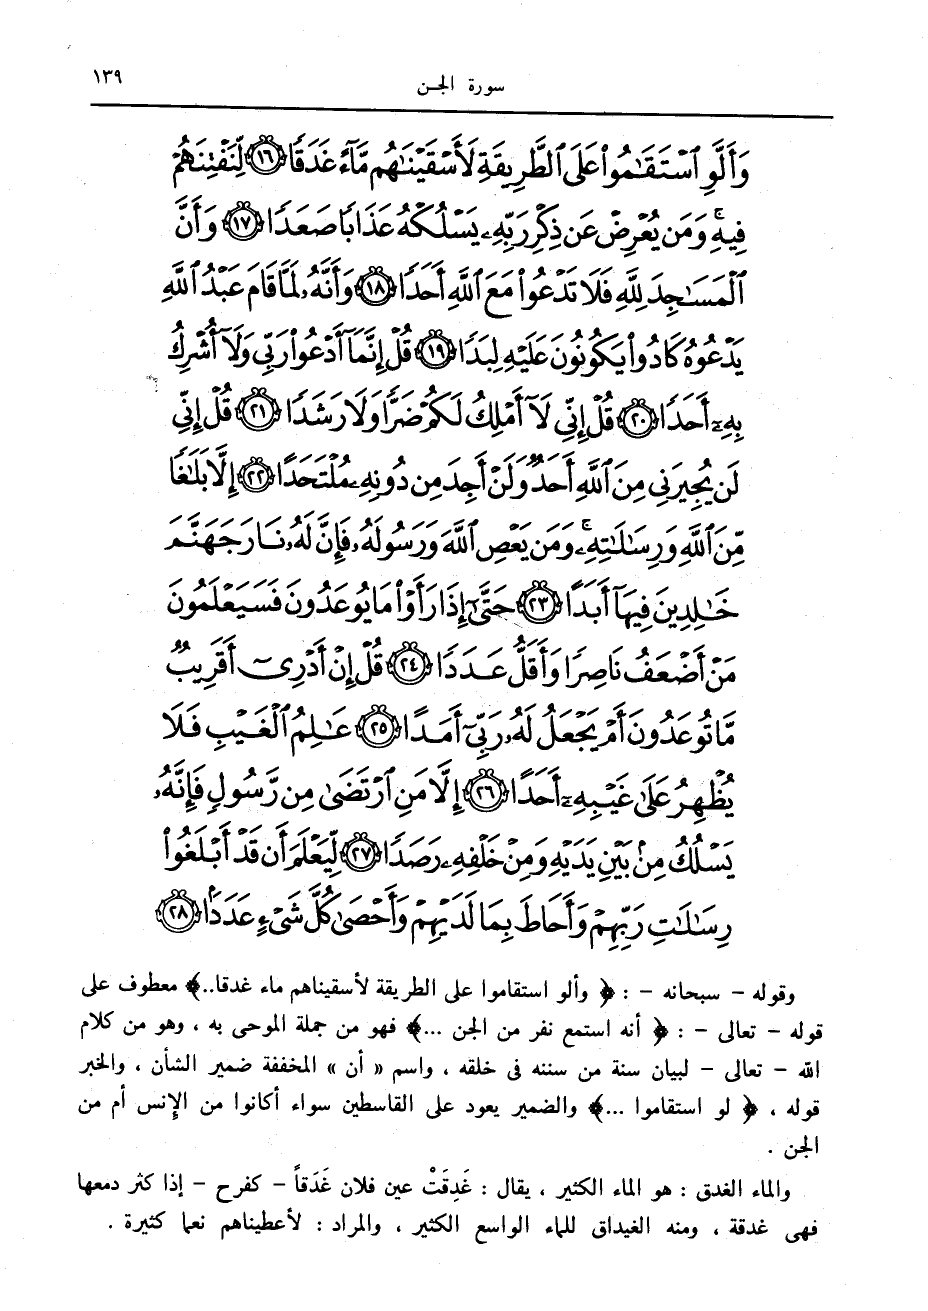 سورة الجـن ١٣٩
وَأَلَّوِ ٱسْتَقَٰمُوا۟ عَلَى ٱلطَّرِيقَةِ لَأَسْقَيْنَٰهُم مَّآءً غَدَقًا ١٦ لِّنَفْتِنَهُمْ
فِيهِ ۚ وَمَن يُعْرِضْ عَن ذِكْرِ رَبِّهِۦ يَسْلُكْهُ عَذَابًا صَعَدًا ١٧ وَأَنَّ
ٱلْمَسَٰجِدَ لِلَّهِ فَلَا تَدْعُوا۟ مَعَ ٱللَّهِ أَحَدًا ١٨ وَأَنَّهُۥ لَمَّا قَامَ عَبْدُ ٱللَّهِ
يَدْعُوهُ كَادُوا۟ يَكُونُونَ عَلَيْهِ لِبَدًا ١٩ قُلْ إِنَّمَآ أَدْعُوا۟ رَبِّى وَلَآ أُشْرِكُ
بِهِۦٓ أَحَدًا ٢٠ قُلْ إِنِّى لَآ أَمْلِكُ لَكُمْ ضَرًّا وَلَا رَشَدًا ٢١ قُلْ إِنِّى
لَن يُجِيرَنِى مِنَ ٱللَّهِ أَحَدٌ وَلَنْ أَجِدَ مِن دُونِهِۦ مُلْتَحَدًا ٢٢ إِلَّا بَلَٰغًا
مِّنَ ٱللَّهِ وَرِسَٰلَٰتِهِۦ ۚ وَمَن يَعْصِ ٱللَّهَ وَرَسُولَهُۥ فَإِنَّ لَهُۥ نَارَ جَهَنَّمَ
خَٰلِدِينَ فِيهَآ أَبَدًا ٢٣ حَتَّىٰٓ إِذَا رَأَوْا۟ مَا يُوعَدُونَ فَسَيَعْلَمُونَ
مَنْ أَضْعَفُ نَاصِرًا وَأَقَلُّ عَدَدًا ٢٤ قُلْ إِنْ أَدْرِىٓ أَقَرِيبٌ
مَّا تُوعَدُونَ أَمْ يَجْعَلُ لَهُۥ رَبِّىٓ أَمَدًا ٢٥ عَٰلِمُ ٱلْغَيْبِ فَلَا
يُظْهِرُ عَلَىٰ غَيْبِهِۦٓ أَحَدًا ٢٦ إِلَّا مَنِ ٱرْتَضَىٰ مِن رَّسُولٍ فَإِنَّهُۥ
يَسْلُكُ مِنۢ بَيْنِ يَدَيْهِ وَمِنْ خَلْفِهِۦ رَصَدًا ٢٧ لِّيَعْلَمَ أَن قَدْ أَبْلَغُوا۟
رِسَٰلَٰتِ رَبِّهِمْ وَأَحَاطَ بِمَا لَدَيْهِمْ وَأَحْصَىٰ كُلَّ شَىْءٍ عَدَدًۢا ٢٨
وقوله – سبحانه – : ﴿ وألو استقاموا على الطريقة لأسقيناهم ماء غدقا..﴾ معطوف على
قوله – تعالى – : ﴿ أنه استمع نفر من الجن ...﴾ فهو من جملة الموحى به ، وهو من كلام
الله – تعالى – لبيان سنة من سننه فى خلقه ، واسم « أن » المخففة ضمير الشأن ، والخبر
قوله ، ﴿ لو استقاموا ...﴾ والضمير يعود على القاسطين سواء أكانوا من الإنس أم من
الجن .
والماء الغدق : هو الماء الكثير ، يقال : غَدِقَتْ عين فلان غَدَقاً – كفرح – إذا كثر دمعها
فهى غدقة ، ومنه الغيداق للماء الواسع الكثير ، والمراد : لأعطيناهم نعما كثيرة .